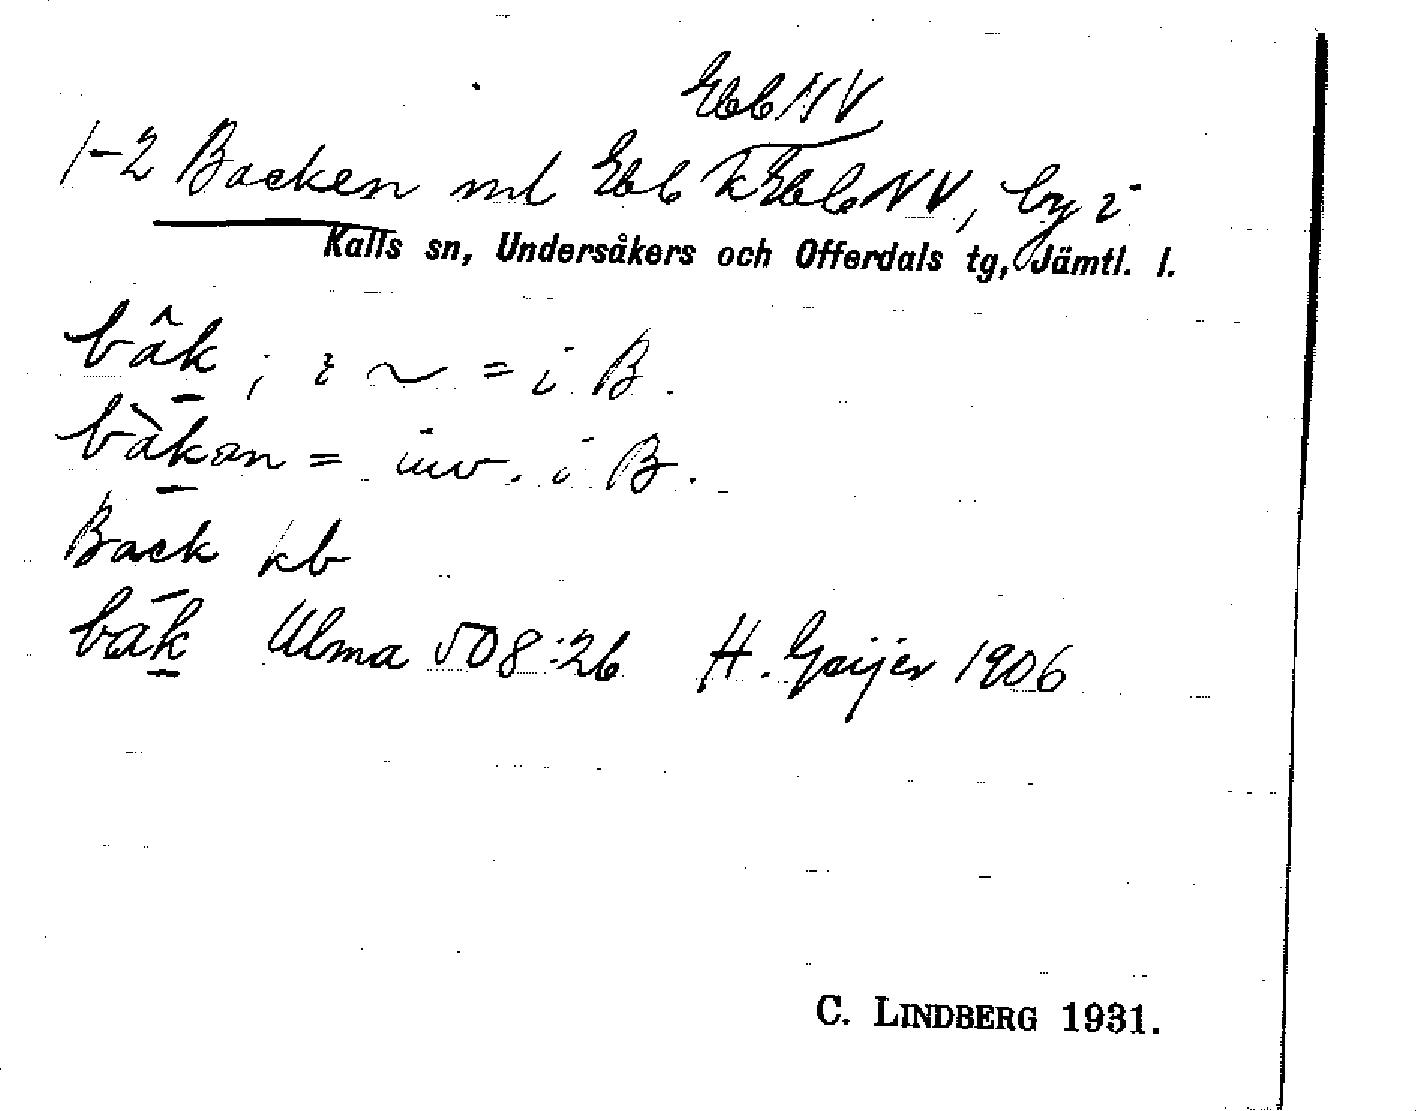 EbbNV
1-2 Backen ml Ebb k EbbNV, by i
Kalls sn, Undersåkers och Offerdals tg, Jämtl. l.
bâk ; i ~ = i B.
bàkan = inv. i B.
Back kb
bāk Ulma 508:26 H. Geijer 1906
C. LINDBERG 1931.